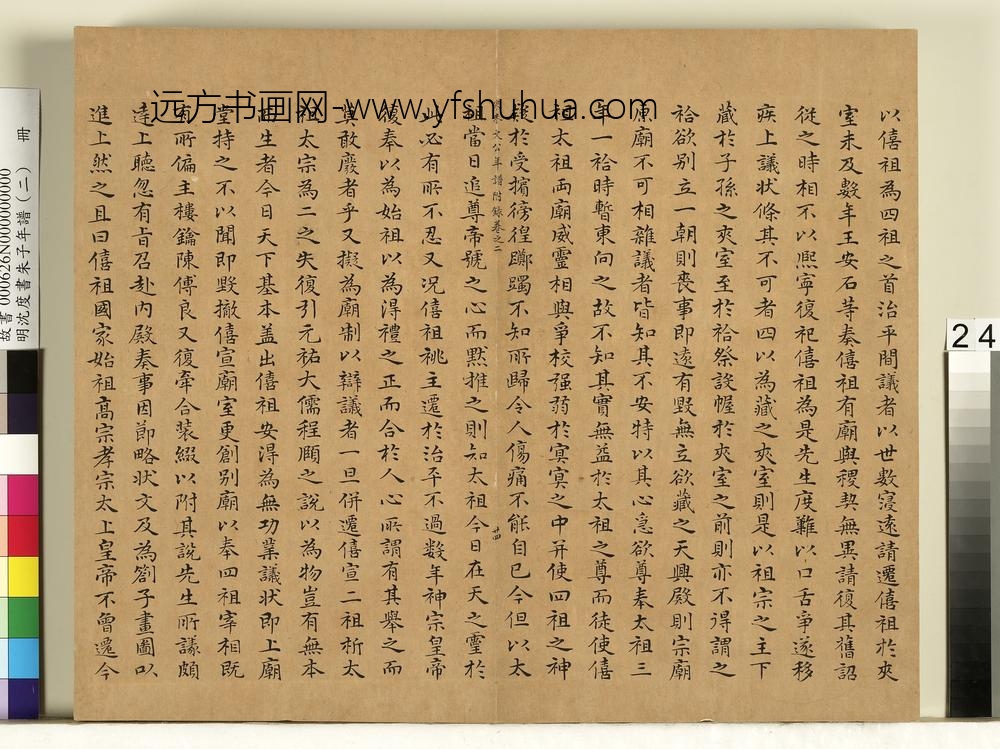 以僖祖為四祖之首治平間議者以世數寖遠請遷僖祖於夾
室未及數年王安石等奏僖祖有廟與稷契無異請復其舊詔
從之時相不以熙寧復祀僖祖為是先生度難以口舌爭遂移
疾上議狀條其不可者四以為藏之夾室則是以祖宗之主下
藏於子孫之夾室至於祫祭設幄於夾室之前則亦不得謂之
祫欲別立一朝則喪事即遠有毀無立欲藏之天興殿則宗廟
原廟不可相雜議者皆知其不安特以其心急欲尊奉太祖三
年一祫時暫東向之故不知其實無益於太祖之尊而徒使僖
祖太祖両廟威靈相與爭校强弱於冥冥之中并使四祖之神
疑於受擯徬徨躑躅不知所歸令人傷痛不能自已今但以太
文公年譜附錄卷之二
廿四
祖當日追尊帝號之心而默推之則知太祖今日在天之靈於
此必有所不忍又况僖祖祧主遷於治平不過数年神宗皇帝
復奉以為始祖以為得禮之正而合於人心所謂有其舉之而
莫敢廢者乎又擬為廟制以辯議者一旦併遷僖宣二祖析太
祖太宗為二之失復引元祐大儒程頤之說以為物豈有無本
而生者今日天下基本盖出僖祖安得為無功業議状即上廟
堂持之不以聞即毀撤僖宣廟室更創別廟以奉四祖宰相既
有所偏主樓鑰陳傅良又復牽合裝綴以附其說先生所議頗
達上聽忽有旨召赴內殿奏事因節略状文及為劄子畫圖以
進上然之且曰僖祖國家始祖高宗孝宗太上皇帝不曾遷今
远方书画网-www.yfshuhua.com
故書 000626N000000000
明沈度書朱子年譜（二） 冊
24